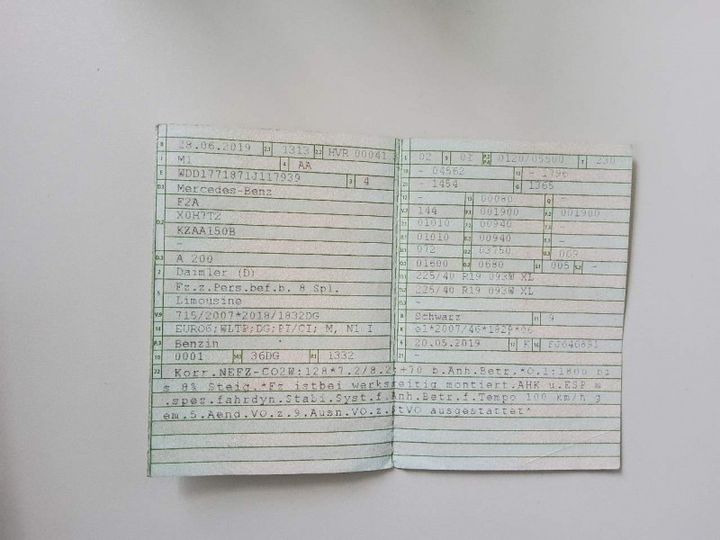 B 28.06.2019 2.1 1313 2.2 HVR 00041
J M1 4 AA
E WDD1771871J117939 3 4
D.1 Mercedes-Benz
F2A
D.2 X0H7T2
KZAA150B
-
D.3 A 200
2 Daimler (D)
5 Fz.z.Pers.bef.b. 8 Spl.
Limousine
V.9 715/2007*2018/1832DG
14 EURO6;WLTP;DG;PI/CI; M, N1 I
P.3 Benzin
10 0001 14.1 36DG P.1 1332
22 Korr.NEFZ-CO2W:128*7.2/8.2:+70 b.Anh.Betr.*O.1:1800
8% Steig.*Fz istbei werksseitig montiert.AHK u.ESP m
.spez.fahrdyn.Stabi.Syst.f.Anh.Betr.f.Tempo 100 km/h g
em.5.Aend.VO.z.9.Ausn.VO.z.StVO ausgestattet*
L 02 9 01 P.2 P.4 0120/05500 T 230
18 - 04562 19 - 1796
20 - 1454 G 1365
12 - 13 00080 Q -
V.7 144 F.1 001900 F.2 001900
7.1 01010 7.2 00940 7.3 -
8.1 01010 8.2 00940 8.3 -
U.1 072 U.2 03750 U.3 069
O.1 01600 O.2 0680 S.1 005 S.2 -
15.1 225/40 R19 093W XL
15.2 225/40 R19 093W XL
15.3 -
R Schwarz 11 9
K e1*2007/46*1829*06
6 20.05.2019 17 K 16
21 -